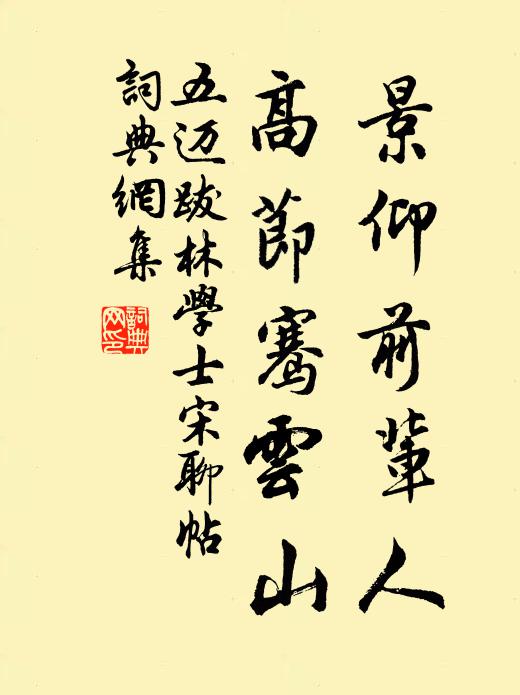 景仰前輩人
高節騫雲山
五迈跋林學士宋聊帖
詞典網集
詞典网印